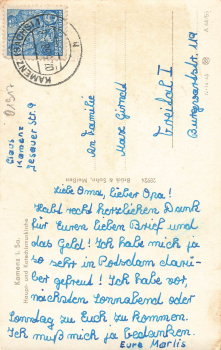 KAMENZ
An Familie
Max
Freital I
Burgwartstr.
Kamenz
Kamenz i. Sa.
Haupt- und Katechismuskirche
Brück & Sohn, Meißen
Liebe Oma, lieber Opa!
Habt recht herzlichen Dank
für Euren lieben Brief und
das Geld! Ich habe mich ja
so sehr in Potsdam darü-
ber gefreut! Ich habe vor,
nächsten Sonnabend oder
Sonntag zu Euch zu kommen.
Ich muß mich ja bedanken.
Eure Marlis